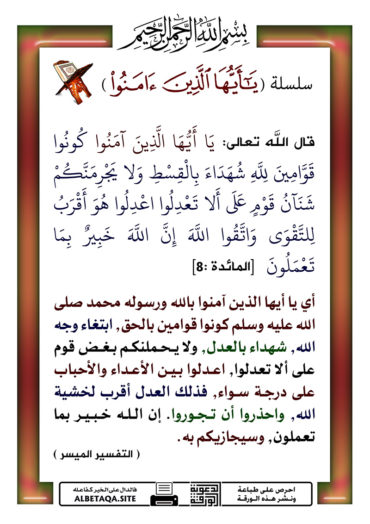 بسم الله الرحمن الرحيم
سلسلة ( يَـٰٓأَيُّهَا ٱلَّذِينَ ءَامَنُواْ )
قال الله تعالى: يَا أَيُّهَا الَّذِينَ آمَنُوا كُونُوا
قَوَّامِينَ لِلَّهِ شُهَدَاءَ بِالْقِسْطِ وَلا يَجْرِمَنَّكُمْ
شَنَآنُ قَوْمٍ عَلَى أَلا تَعْدِلُوا اعْدِلُوا هُوَ أَقْرَبُ
لِلتَّقْوَى وَاتَّقُوا اللَّهَ إِنَّ اللَّهَ خَبِيرٌ بِمَا
تَعْمَلُونَ [المائدة :8]
أي يا أيها الذين آمنوا بالله ورسوله محمد صلى
الله عليه وسلم كونوا قوامين بالحق, ابتغاء وجه
الله, شهداء بالعدل, ولا يحملنكم بغض قوم
على ألا تعدلوا, اعدلوا بين الأعداء والأحباب
على درجة سواء, فذلك العدل أقرب لخشية
الله, واحذروا أن تجوروا. إن الله خبير بما
تعملون, وسيجازيكم به.
( التفسير الميسر )
احرص على طباعة
ونشر هذه الورقة
الدعوية
الورقة
فالدال على الخير كفاعله
ALBETAQA.SITE